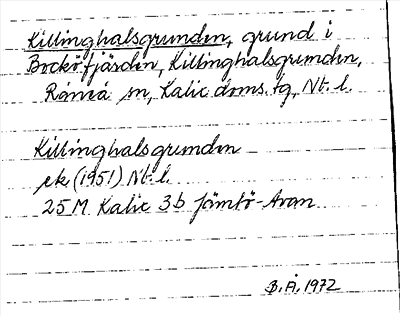 Killinghalsgrunden, grund i
Bocköfjärden, Killinghalsgrunden,
Råneå sn, Kalix doms. tg, Nt. l.
Killinghalsgrunden
ek (1951) Nt. l.
25 M Kalix 3b Jämtö-Avan
B.Å. 1972